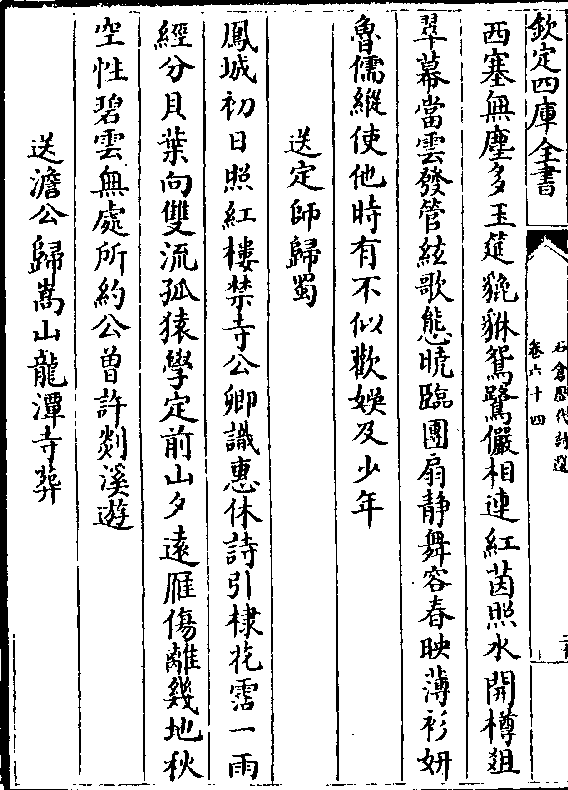 欽定四庫全書
石倉歷代詩選
卷六十四
西塞無塵多玉筵貔貅鴛鷺儼相連紅茵照水開樽俎
翠幕當雲發管絃歌態曉臨團扇静舞容春映薄衫妍
魯儒縱使他時有不似歡娛及少年
送定師歸蜀
鳳城初日照紅樓禁寺公卿識惠休詩引棣花霑一雨
經分貝葉向雙流孤猿學定前山夕遠雁傷離幾地秋
空性碧雲無處所約公曽許剡溪遊
送澹公歸嵩山龍潭寺葬